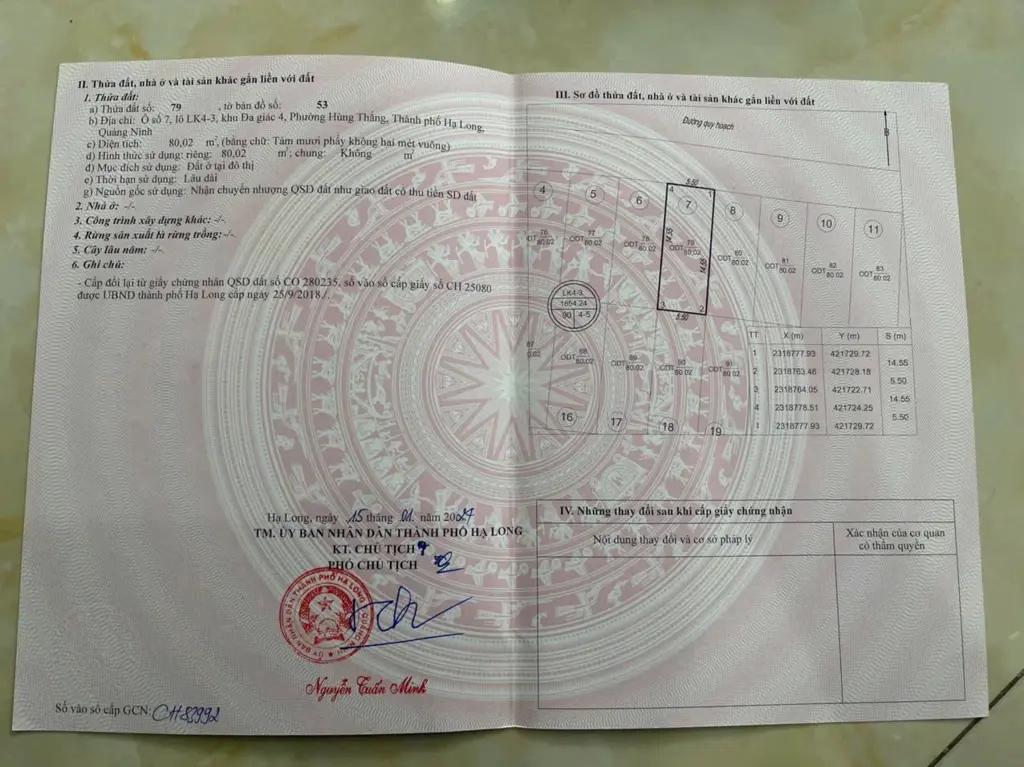 II. Thửa đất, nhà ở và tài sản khác gắn liền với đất
1. Thửa đất:
a) Thửa đất số: 79 , tờ bản đồ số: 53
b) Địa chỉ: Ô số 7, lô LK4-3, khu Đa giác 4, Phường Hùng Thắng, Thành phố Hạ Long,
Quảng Ninh
c) Diện tích: 80,02 m², (bằng chữ: Tám mươi phẩy không hai mét vuông)
d) Hình thức sử dụng: riêng: 80,02 m²; chung: Không m²
đ) Mục đích sử dụng: Đất ở tại đô thị
e) Thời hạn sử dụng: Lâu dài
g) Nguồn gốc sử dụng: Nhận chuyển nhượng QSD đất như giao đất có thu tiền SD đất
2. Nhà ở: -/-
3. Công trình xây dựng khác: -/-.
4. Rừng sản xuất là rừng trồng:-/-.
5. Cây lâu năm: -/-.
6. Ghi chú:
- Cấp đổi lại từ giấy chứng nhận QSD đất số CO 280235, số vào sổ cấp giấy số CH 25080
được UBND thành phố Hạ Long cấp ngày 25/9/2018./.
Hạ Long, ngày 15 tháng 01 năm 2024
TM. ỦY BAN NHÂN DÂN THÀNH PHỐ HẠ LONG
KT. CHỦ TỊCH
PHÓ CHỦ TỊCH
Nguyễn Tuấn Minh
Số vào sổ cấp GCN: CH82992
III. Sơ đồ thửa đất, nhà ở và tài sản khác gắn liền với đất
Đường quy hoạch
B
5.50
4 5 6 4 7 8 9 10 11
14.55
14.55
ODT 76 80.02
ODT 77 80.02
ODT 78 80.02
ODT 79 80.02
ODT 80 80.02
ODT 81 80.02
ODT 82 80.02
ODT 83 80.02
3 2
5.50
LK4-3
1854.24
90 4-5
87 0.02
ODT 88 80.02
ODT 89 80.02
ODT 90 80.02
ODT 91 80.02
16 17 18 19
TT X (m) Y (m) S (m)
1 2318777.93 421729.72
14.55
2 2318763.46 421728.18
5.50
3 2318764.05 421722.71
14.55
4 2318778.51 421724.25
5.50
1 2318777.93 421729.72
IV. Những thay đổi sau khi cấp giấy chứng nhận
Nội dung thay đổi và cơ sở pháp lý
Xác nhận của cơ quan
có thẩm quyền